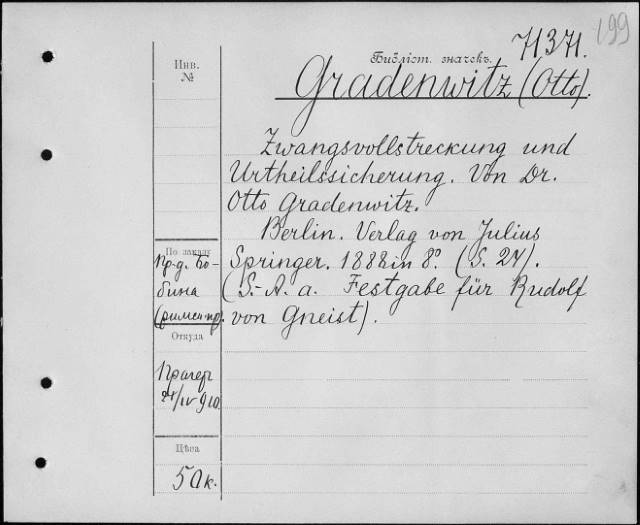 199
71371.
Инв.
№
Библіот. значекъ.
Gradenwitz (Otto).
Zwangsvollstreckung und
Urtheilssicherung. Von Dr.
Otto Gradenwitz.
Berlin. Verlag von Julius
Springer. 1888 in 8º. (S. 27).
(S.-A. a. Festgabe für Rudolf
von Gneist).
По заказу
Пр-д. Бо-
бина
Откуда
Прагер
24/IV 910
Цѣна
50 к.